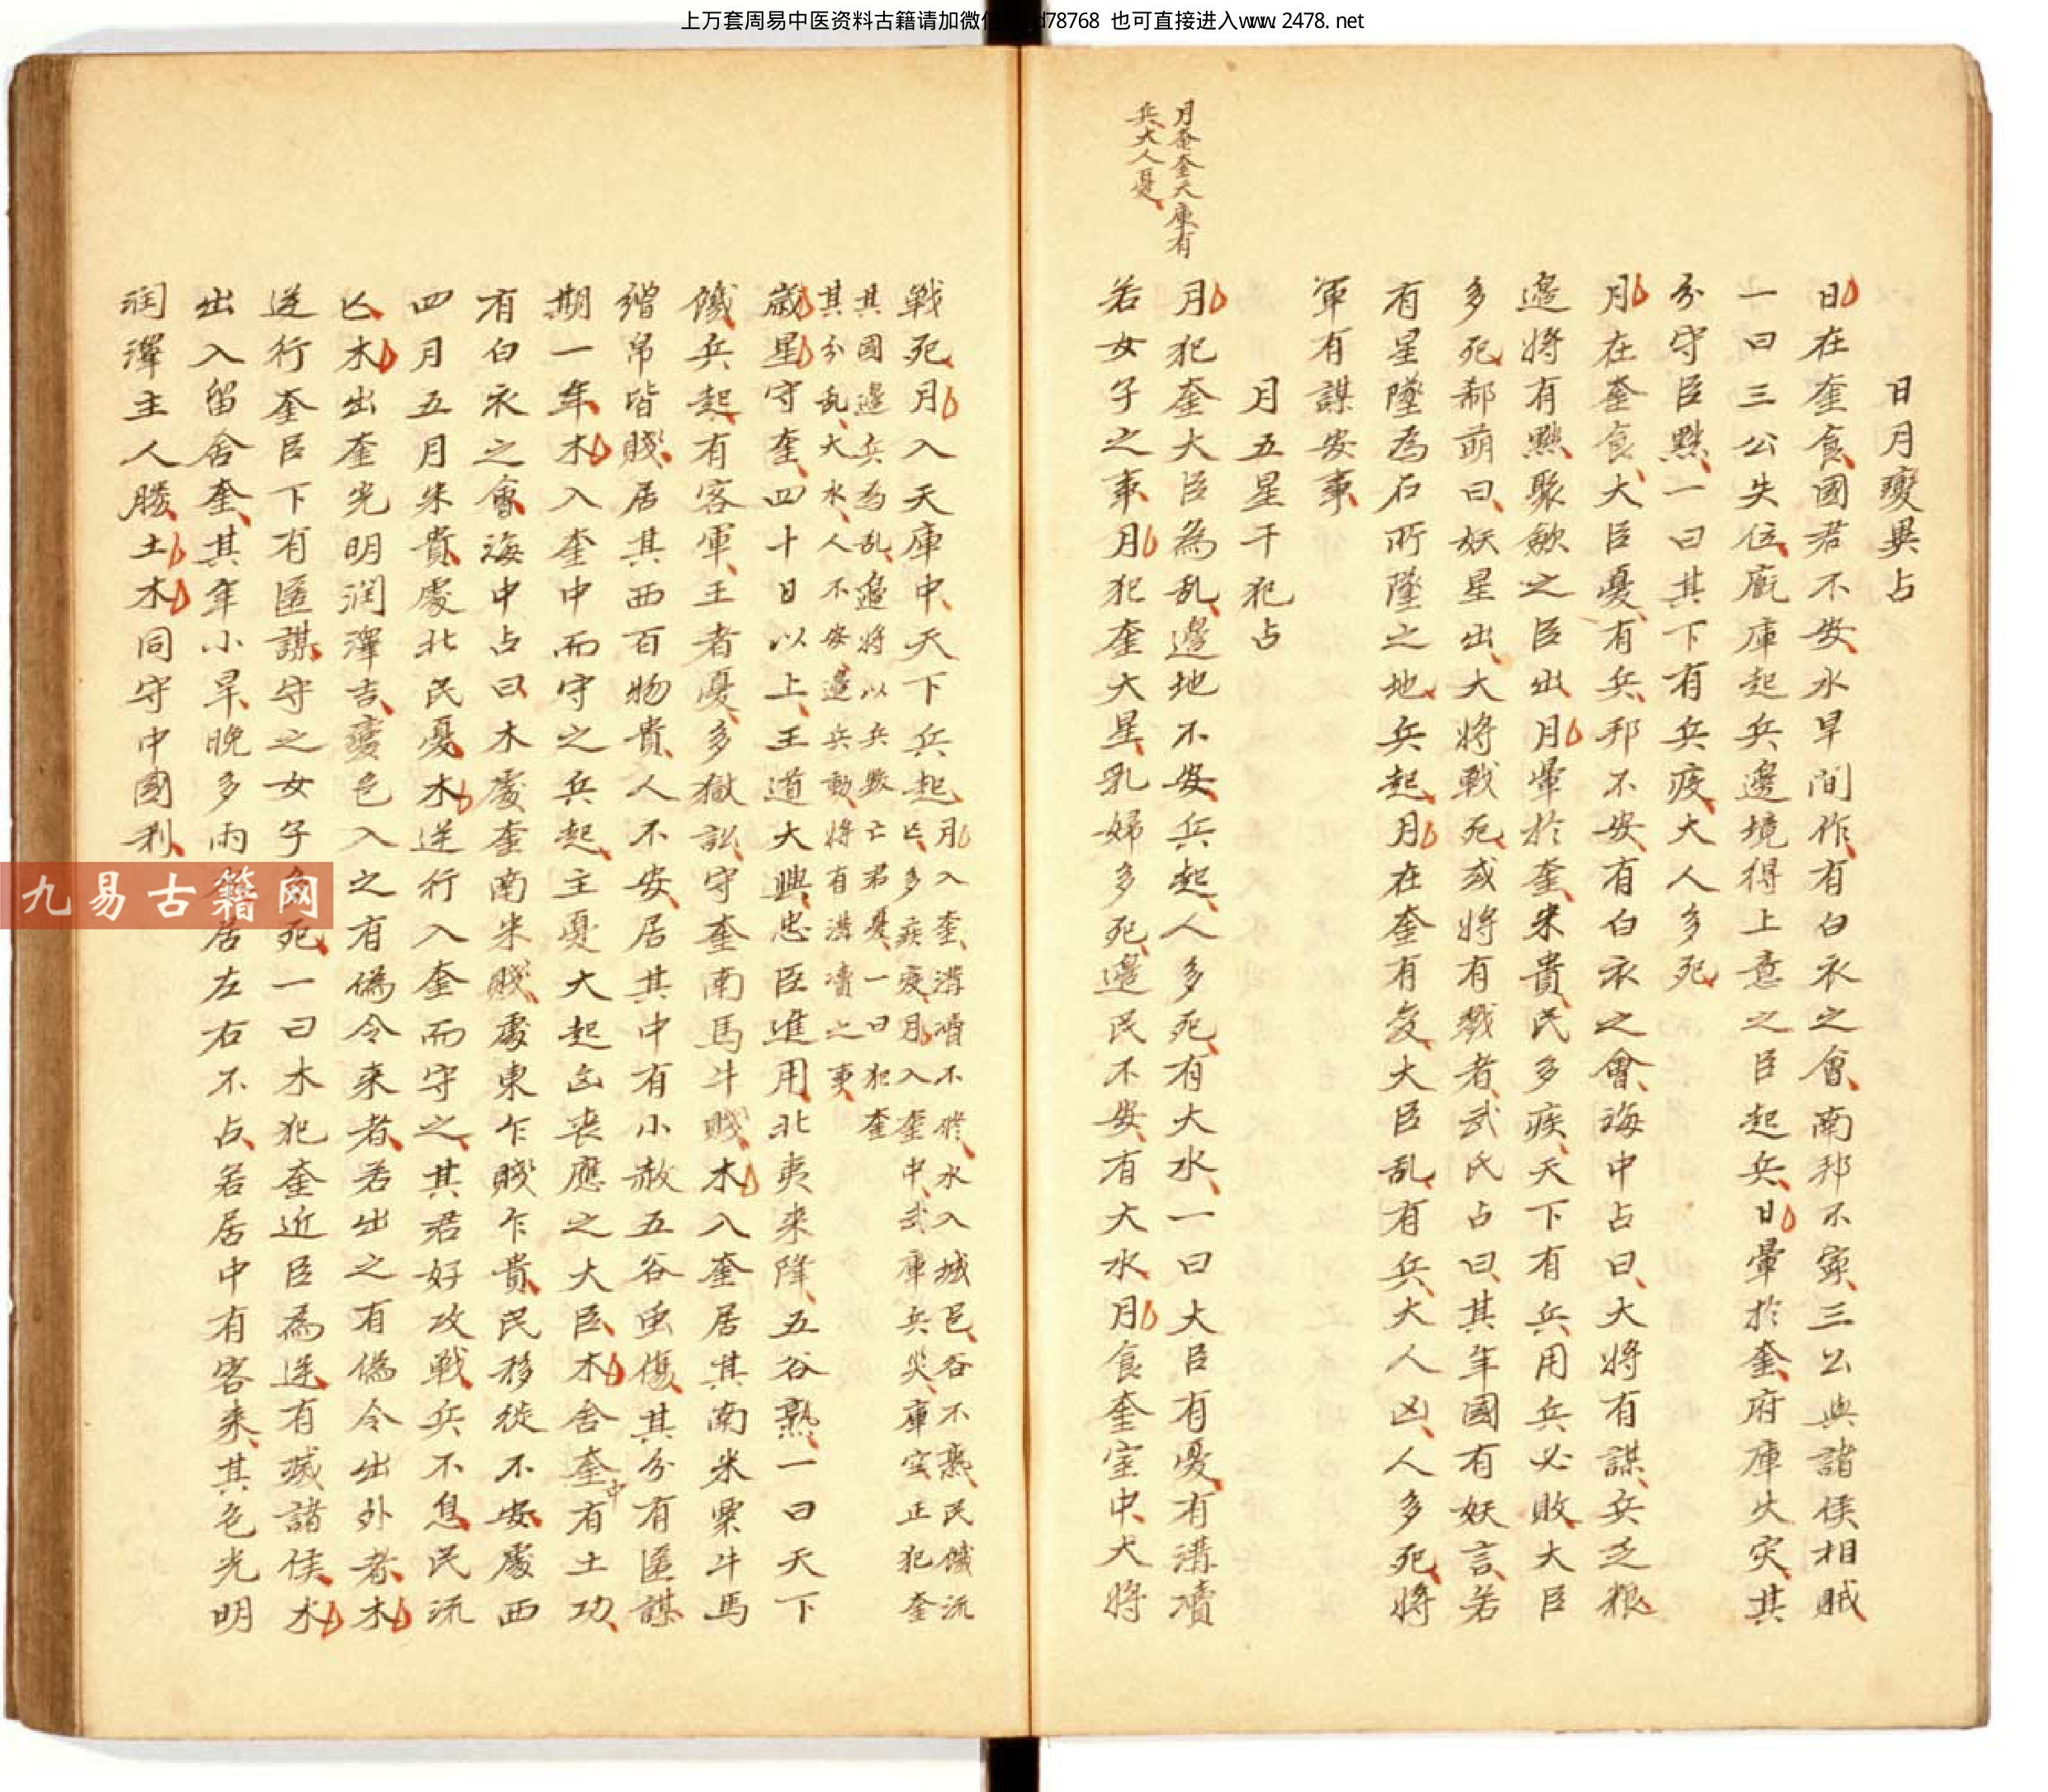 上万套周易中医资料古籍请加微信 d78768 也可直接进入www.2478.net
月奎奎天庫有
兵大人憂
日月變異占
日在奎食國君不安水旱間作有白衣之會南邦不寧三公與諸侯相賊
一曰三公失位廐庫起兵邊境得上意之臣起兵日暈於奎府庫火灾其
分守臣黜一曰其下有兵疫大人多死
月在奎食大臣憂有兵邦不安有白衣之會海中占曰大將有謀兵乏粮
邊將有黜聚歛之臣出月暈於奎米貴民多疾天下有兵用兵必敗大臣
多死郗萌曰妖星出大將戰死或將有戮者武氏占曰其年國有妖言若
有星墜為石所墜之地兵起月在奎有变大臣乱有兵大人凶人多死將
軍有謀安事
月五星干犯占
月犯奎大臣為乱邊地不安兵起人多死有大水一曰大臣有憂有溝瀆
若女子之事月犯奎大星乳婦多死邊民不安有大水月食奎宝中犬將
戰死月入天庫中天下兵起月入奎溝瀆不修水入城邑谷不熟民饑流
亡多疾疫月入奎中武庫兵災庫室正犯奎
其國邊兵為乱邊將以兵敗亡君憂一曰犯奎
其分乱大水人不安邊兵動將有溝瀆之事
歲星守奎四十日以上王道大興忠臣進用北夷來降五谷熟一曰天下
饑兵起有客軍王者憂多獄訟守奎南馬牛賤木入奎居其南米粟牛馬
繒帛皆賤居其西百物貴人不安居其中有小赦五谷虫傷其分有匿謀
期一年木入奎中而守之兵起主憂大起凶丧應之大臣木舍奎中有土功
有白衣之會海中占曰木處奎南米賤處東乍賤乍貴民移從不安處西
四月五月米貴處北民憂木逆行入奎而守之其君好攻戰兵不息民流
亡木出奎光明潤澤吉變色入之有偽令来者若出之有偽令出外者木
逆行奎臣下有匿謀守之女子多死一曰木犯奎近臣為逆有滅諸侯木
出入留舍奎其年小旱晚多雨居左右不占若居中有客来其色光明
潤澤主人勝土木同守中國利
九易古籍网